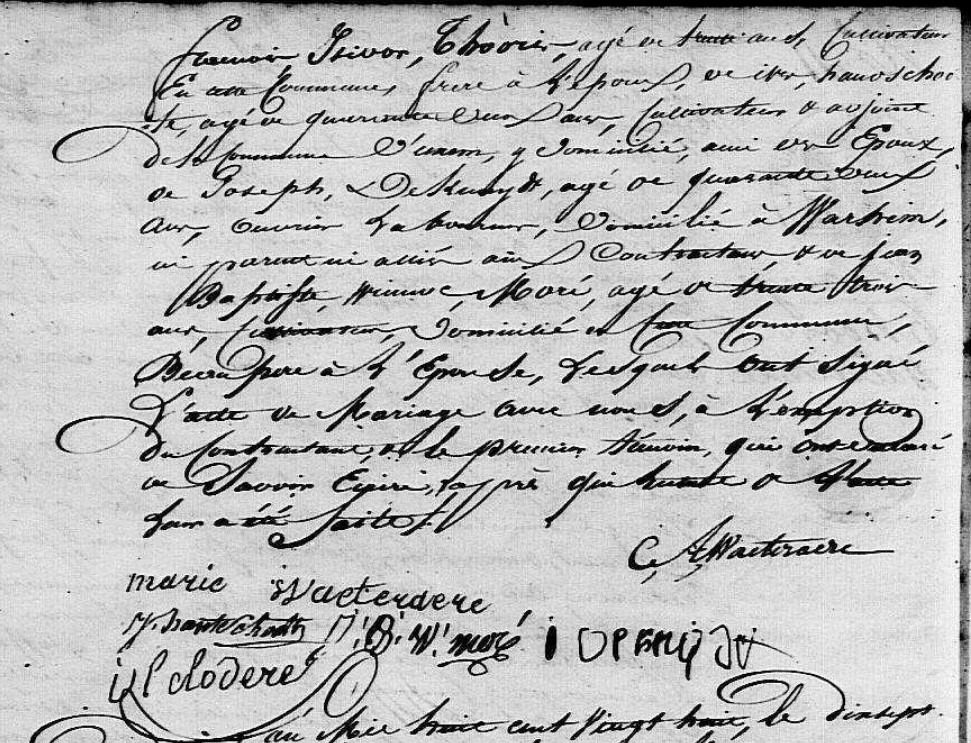 françois Isivor, Thoöris, agé de trente ans, Cultivateur
En cette Commune, frere à L'epoux, de ives, hanoschoe
te, agé de quarente deux ans, Cultivateur & adjoint
de la Commune D'uxem, y Domicilié, ami des Epoux,
de Joseph, L DeKuydt, agé de quarante deux
ans, ouvrier Laboureur, Domicilié à Warhem,
ni parent ni alliés aux Contractans, & de jean
Baptiste, Winnoc, Moré, agé de trente trois
ans, Cultivateur, Domicilié en Cette Commune,
Beau frere à L'Epouse, Lesquels ont signé
L'acte de Mariage avec nous, à L'exeption
du Contractant, & le premier témoin, qui ont declaré
ne Savoir Ecrire, après que lecture
leur a été faite.
C, A, Waeteraere
marie Waeterdere
J. B. W. moré
au Mil huit cent vingt huit, le dixsept